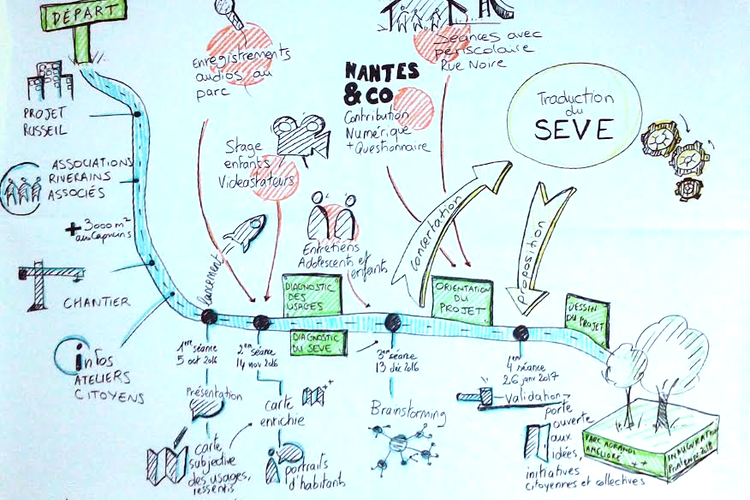 DÉPART
PROJET
RUSSEIL
ASSOCIATIONS
RIVERAINS
ASSOCIÉS
+ 3000 m²
aux Capucins
CHANTIER
infos
ATELIERS
CITOYENS
Enregistrements
audios au
parc
Stage
enfants
Vidéastateurs
Entretiens
Adolescents et
enfants
NANTES
& CO
Contribution
Numérique
+ Questionnaire
Séances avec
périscolaire
Rue Noire
Traduction
du
SEVE
concertation
proposition
lancement
DIAGNOSTIC
DES
USAGES
DIAGNOSTIC
DU SEVE
ORIENTATION
DU
PROJET
DESSIN
DU PROJET
1ère séance
5 oct 2016
2ème séance
14 nov 2016
3ème séance
13 déc 2016
4 séance
26 janv 2017
Présentation
carte
subjective
des usages,
ressentis
carte
enrichie
portraits
d'habitants
Brainstorming
validation
porte
ouverte
aux
idées
initiatives
citoyennes et collectives
PARC AGRANDI
AMÉLIORÉ